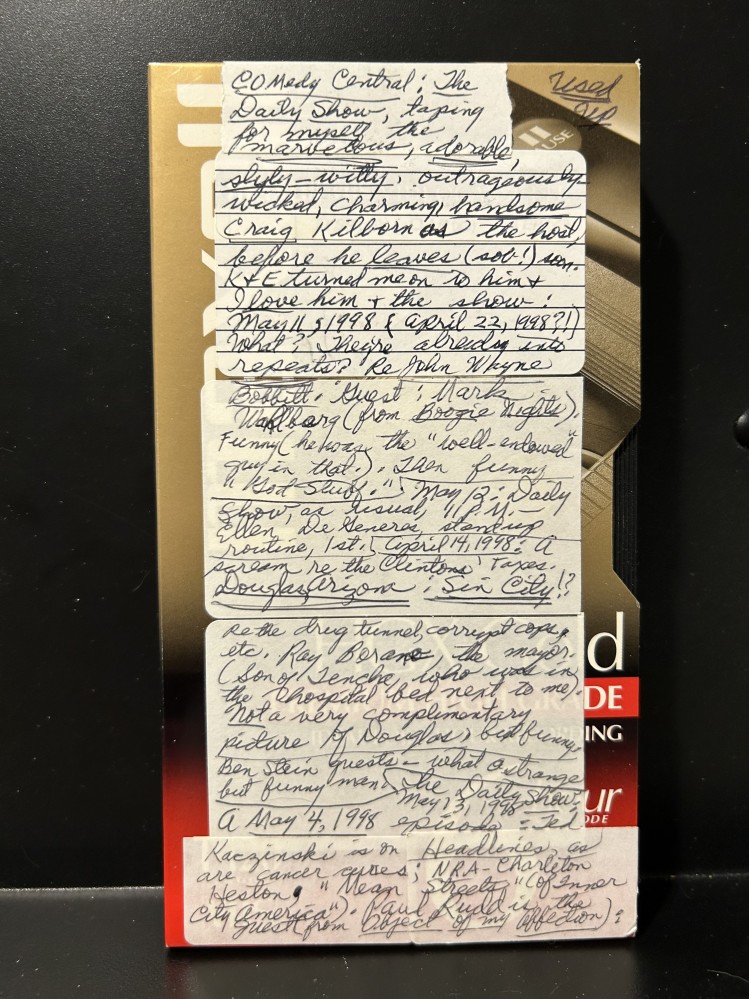 Used
Up
USE
Comedy Central: The
Daily Show, taping
for myself the
marvelous, adorable,
slyly-witty, outrageously-
wicked, charming, handsome
Craig Kilborn as the host,
before he leaves (sob!) soon.
K+E turned me on to him +
I love him + the show:
May 11, 1998 & April 22, 1998?!)
What? They're already into
repeats? Re John Wayne
Bobbitt. Guest: Mark
Wahlburg (from Boogie Nights).
Funny (he was the "well-endowed"
guy in that.). Then funny
"God Stuff." May 12: Daily
Show, as usual, 11 P.M. -
Ellen De Generes, standup
routine, 1st. April 14, 1998: A
scream re the Clintons' Taxes.
Douglas, Arizona: Sin City!?
Re the drug tunnel, corrupt cops,
etc. Ray Borane, the mayor.
(Son of Tencha, who was in
the hospital bed next to me).
Not a very complimentary
picture of Douglas, but funny
Ben Stein guests - what a strange
but funny man. The Daily Show:
May 13, 1998
A May 4, 1998 episode: Ted
Kaczinski is on Headlines, as
are cancer cures; NRA-Charleton
Heston, "Mean Streets" (of Inner
City America"). Paul Rudd is the
guest (from Object of my Affection):
d
GRADE
DING
ur
ODE